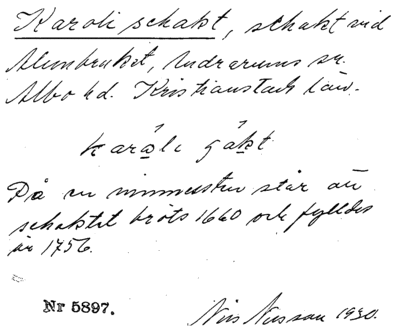 Karoli schakt, schakt vid
Alunbruket, Andrarums sn.
Albo hd. Kristianstads län.
karoli ʃakt
På en minnessten står att
schaktet bröts 1660 och fylldes
år 1756.
Nr 5897.
Nils Nilsson 1930.